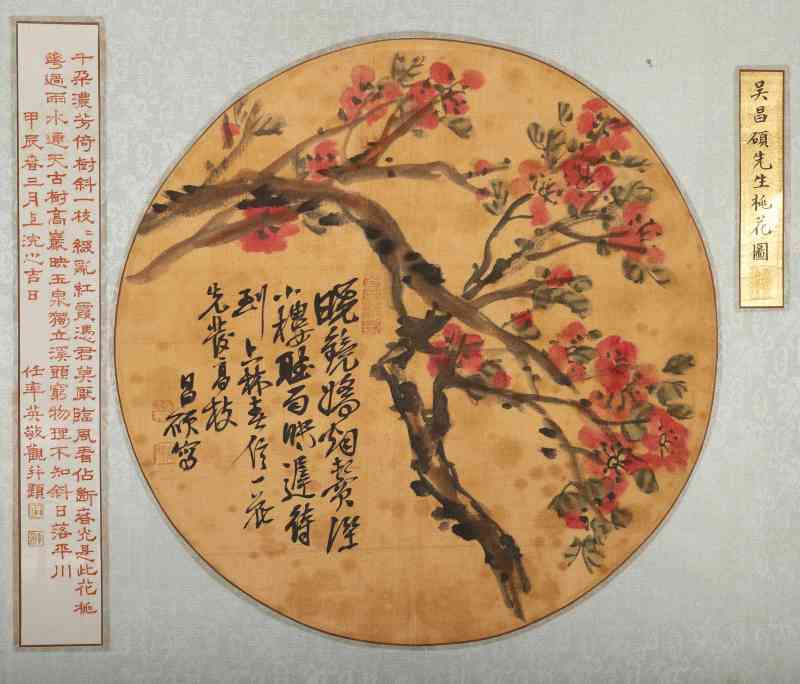 吴昌碩先生桃花圖
曉鏡嬌烟鬢深
小樓聽雨眠遲待
到上林春信一花
先發高枝
昌碩寫
千朵濃芳倚樹斜一枝〻綴亂紅霞憑君莫厭臨風看佔斷春光是此花桃
華過雨水連天古樹高巖映玉泉獨立溪頭窮物理不知斜日落平川
甲辰春三月上浣之吉日 任率英敬觀并題